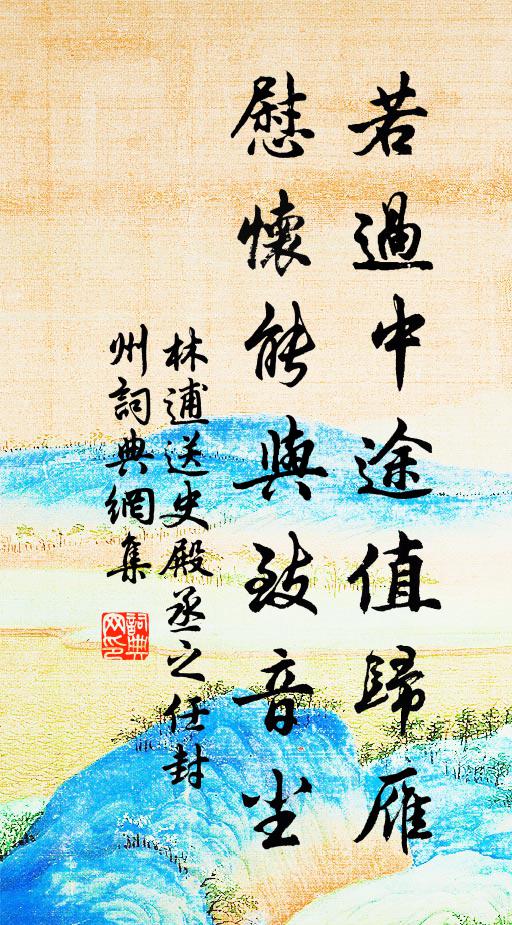 若過中途值歸雁
慰懷能與致音尘
林逋送史殿丞之任封
州詞典網集
詞典
网印